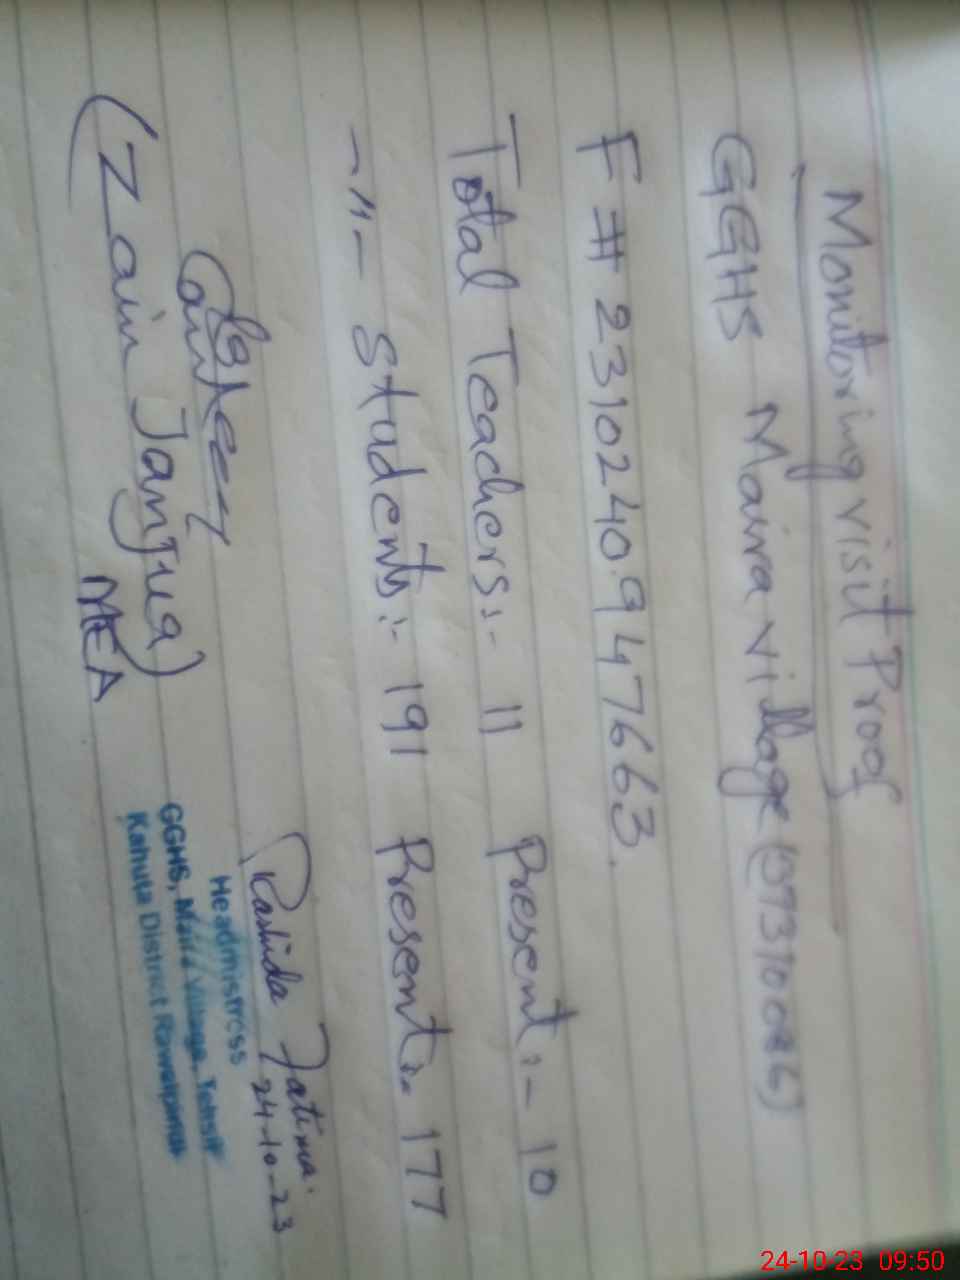 Monitoring visit Proof
GGHS Maira village (37310036)
F# 2310240947663.
Total Teachers:- 11 Present:- 10
-"- Students:- 191 Present:- 177
Rashida Fatima.
24-10-23
Headmistress
GGHS, Maira Village, Tehsil
Kahuta District Rawalpindi
(Zain Janjua)
MEA
24-10-23 09:50